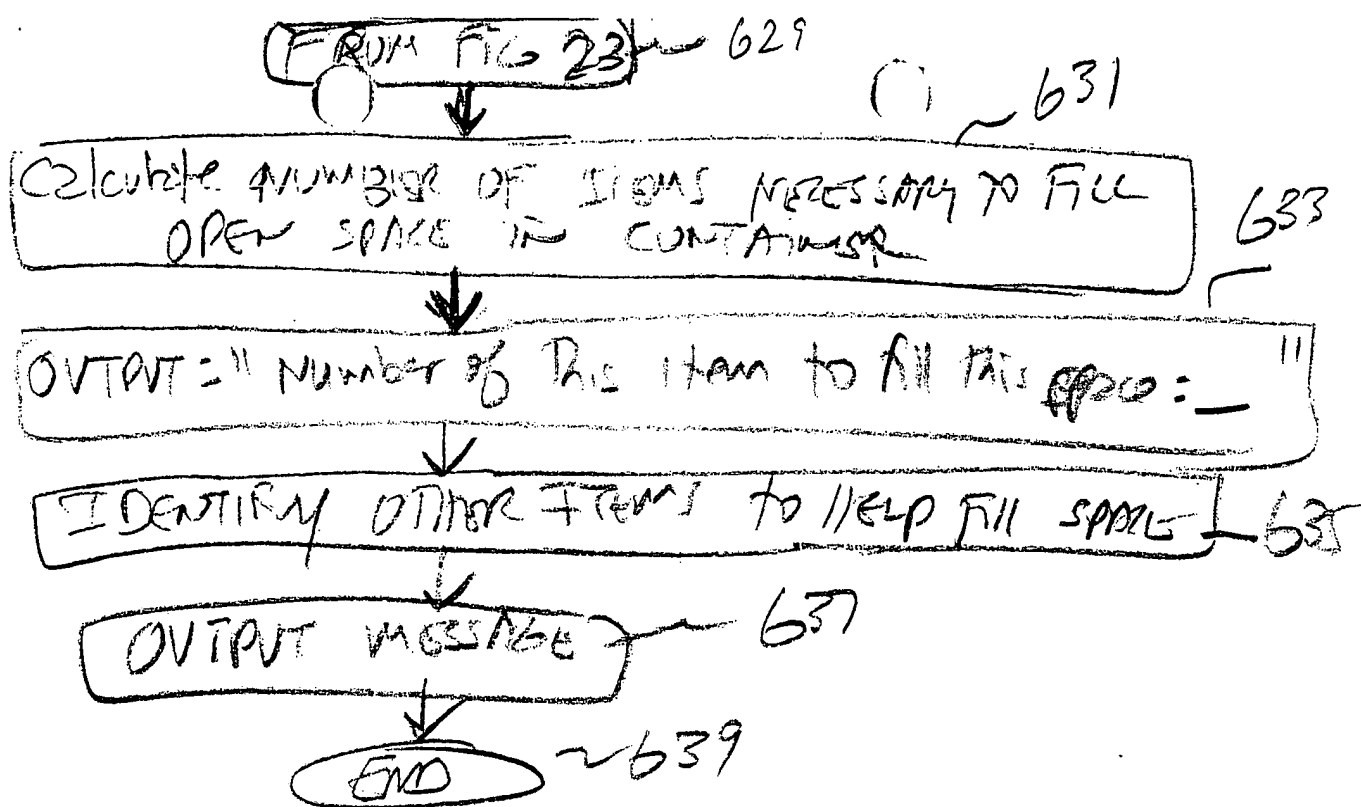 FROM FIG 23 629
631
Calculate NUMBER OF ITEMS NECESSARY TO FILL
OPEN SPACE IN CONTAINER
633
OUTPUT: " Number of This item to fill this space: _ "
IDENTIFY OTHER ITEMS to HELP Fill SPACE 635
OUTPUT MESSAGE 637
END 639